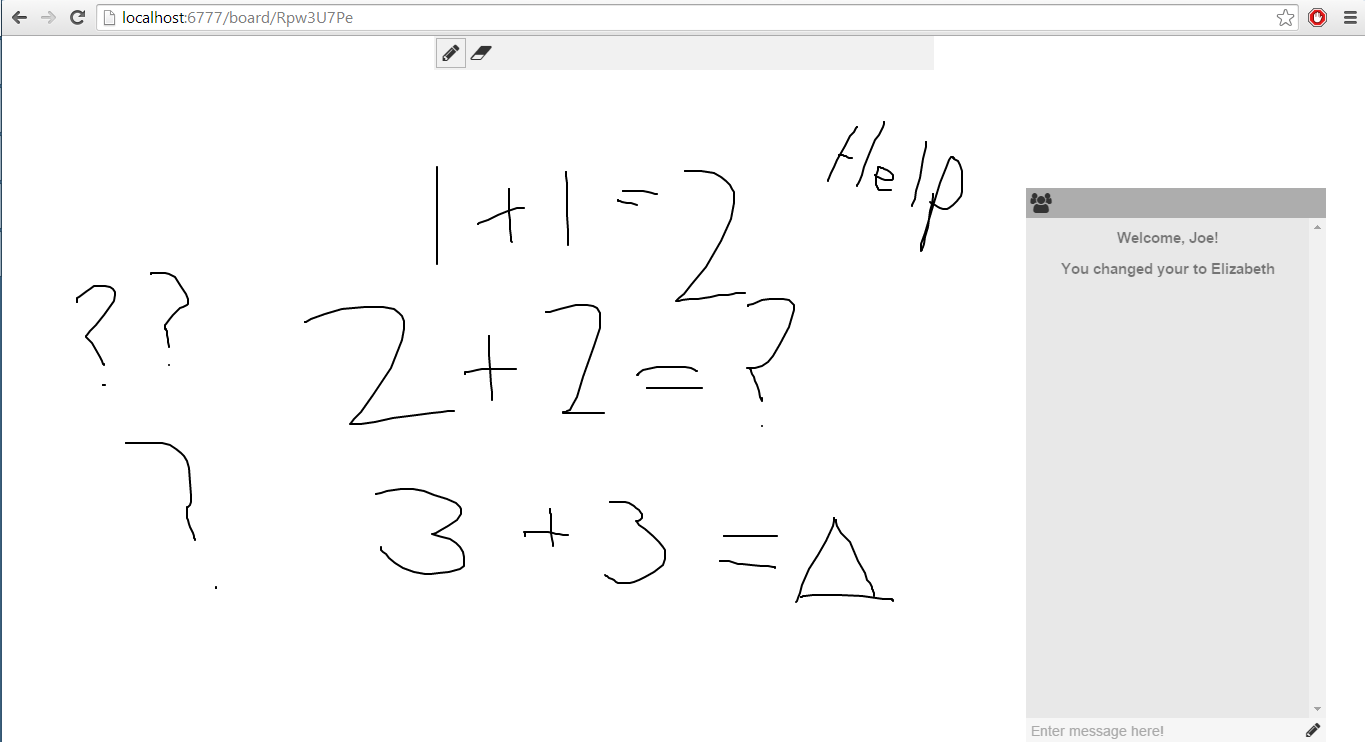 localhost:6777/board/Rpw3U7Pe
Help
1 + 1 = 2
? ?
2 + 2 = ?
?
3 + 3 = Δ
Welcome, Joe!
You changed your to Elizabeth
Enter message here!